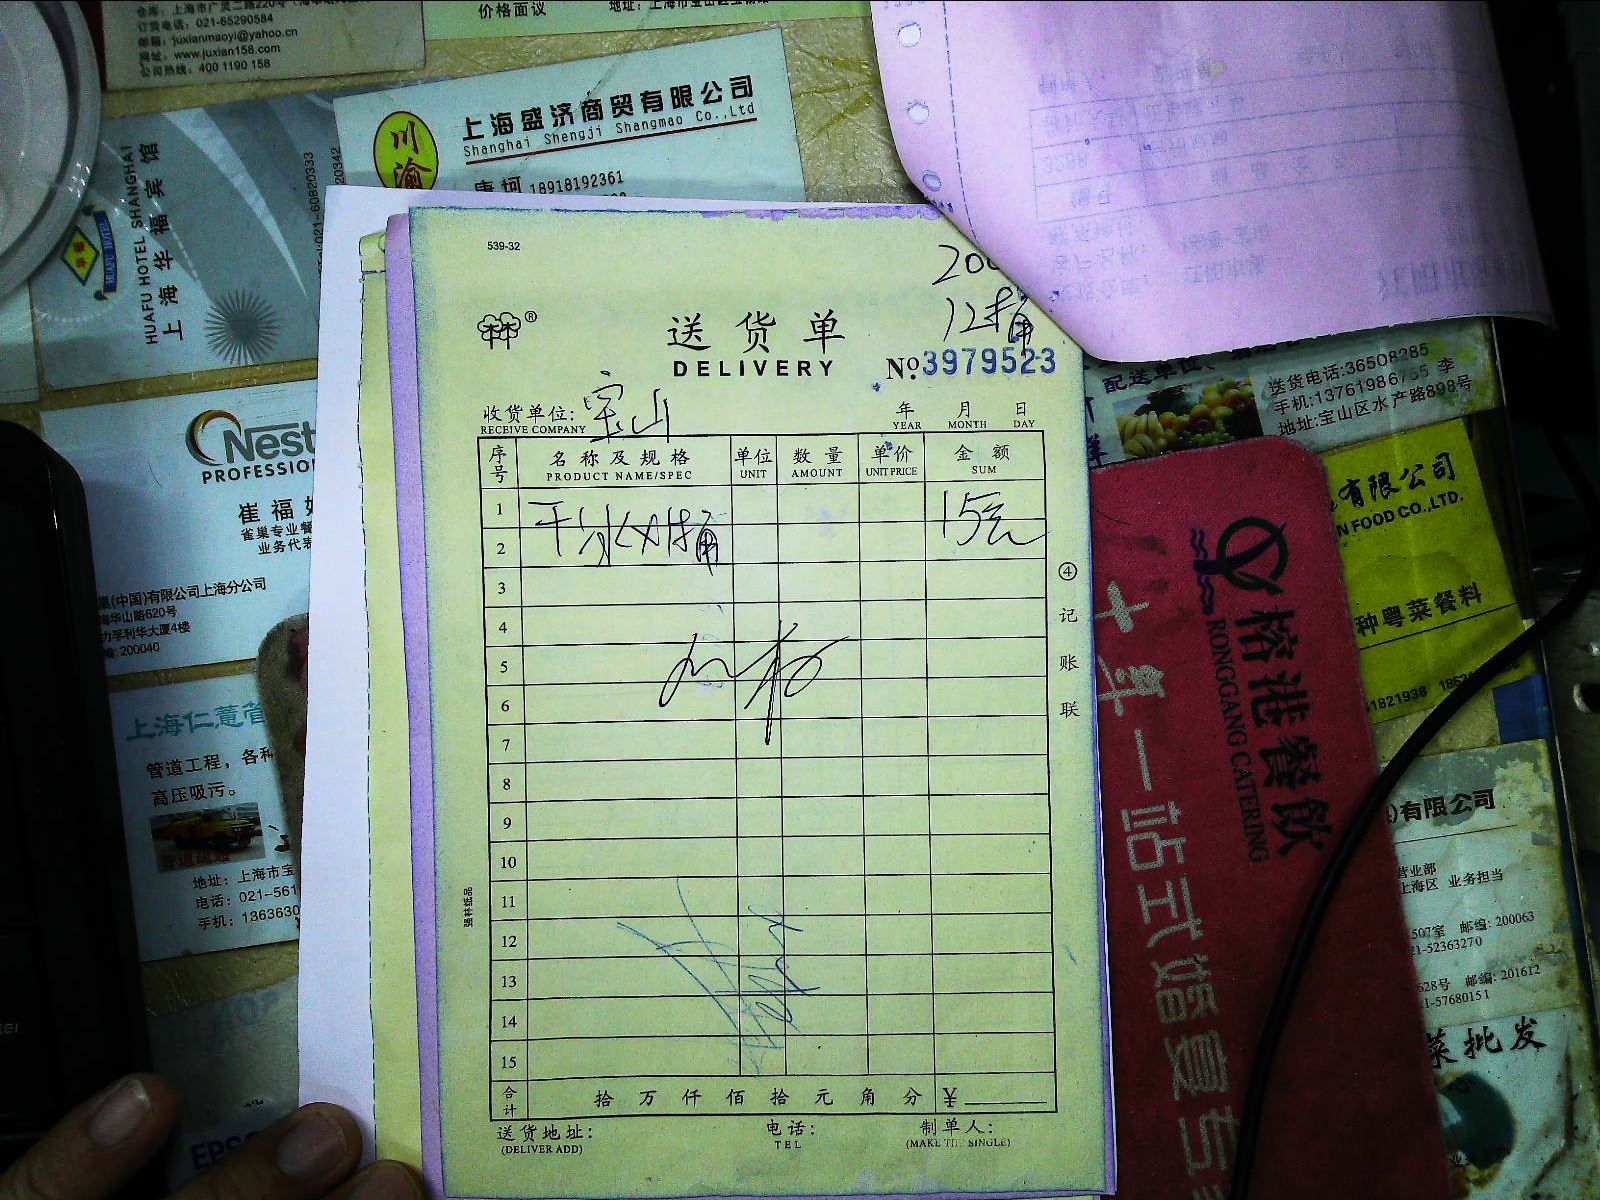 仓库：上海市广灵二路220号
订货电话：021-65290584
邮箱：juxianmaoyi@yahoo.cn
网址：www.juxian158.com
公司热线：400 1190 158
价格面议
上海盛济商贸有限公司
Shanghai Shengji Shangmao Co.,Ltd
川渝
唐珂 18918192361
HUAFU HOTEL SHANGHAI
上海华福宾馆
Tel:021-60820333
539-32
送货单
DELIVERY
12桶
No.3979523
收货单位：宝山
RECEIVE COMPANY
年 月 日
YEAR MONTH DAY
序号 名称及规格 单位 数量 单价 金额
PRODUCT NAME/SPEC UNIT AMOUNT UNIT PRICE SUM
1 15元
2
3
4
5
6
7
8
9
10
11
12
13
14
15
合计 拾 万 仟 佰 拾 元 角 分 ¥
送货地址： 电话： 制单人：
(DELIVER ADD) TEL (MAKE THE SINGLE)
④记账联
强林纸品
Nest
PROFESSIO
崔福
雀巢专业餐
业务代表
巢(中国)有限公司上海分公司
海华山路620号
力孚利华大厦4楼
编: 200040
管道工程，各种
高压吸污。
管道疏通
地址：上海市宝
电话：021-561
手机：1363630
EPSO
配送单位、
送货电话:36508285
手机:13761986755 李
地址:宝山区水产路898号
有限公司
N FOOD CO.,LTD.
种粤菜餐料
榕港餐飲
RONGGANG CATERING
十年一站式婚宴专
有限公司
营业部
上海区 业务担当
507室 邮编: 200063
21-52363270
628号 邮编: 201612
1-57680151
菜批发